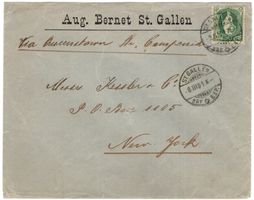 Aug. Bernet St. Gallen
Via Queenstown Str. Campania
Messrs Kessler & Co
P.O. Box 1105
New York
ST. GALLEN